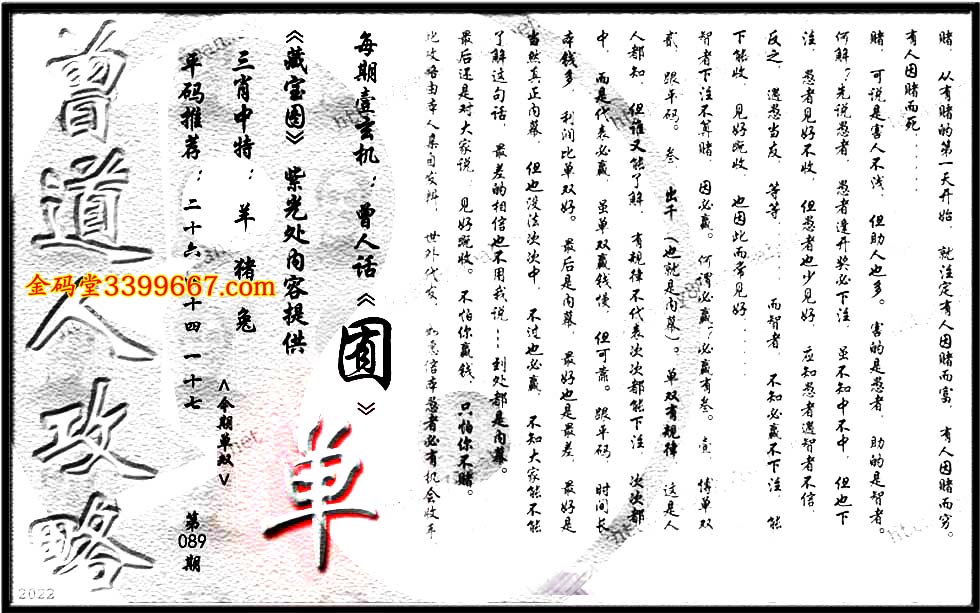 赌，从有赌的第一天开始，就注定有人因赌而富，有人因赌而穷。
有人因赌而死......
赌，可说是害人不浅，但助人也多。害的是愚者，助的是智者。
何解？先说愚者，愚者逢开奖必下注，虽不知中不中，但也下
注，愚者见好不收，但愚者也少见好，应知愚者遇智者不信，
反之，遇愚当友，等等......而智者，不知必赢不下注，能
下能收，见好既收，也因此而常见好......
智者下注不算赌，因必赢。何谓必赢？必赢有叁。壹，博单双
贰，跟平码。叁，出千（也就是内幕）。单双有规律，这是人
人都知，但谁又能了解，有规律不代表次次都能下注，次次都
中，而是代表必赢，虽单双赢钱慢，但可靠。跟平码，时间长
本钱多，利润比单双好。最后是内幕，最好也是最差，最好是
当然真正内幕，但也没法次次中，不过也必赢，不知大家能不
了解这句话，最差的相信也不用我说...到处都是内幕。
最后还是对大家说，见好既收。不怕你赢钱，只怕你不赌。
此攻略由本人亲自发辨，世外代友，如意信本愚者必有机会收车
每期壹玄机：曾人话《囿》
《藏宝图》紫光处内容提供
三肖中特：羊 猪 兔
平码推荐：二十六 十四 一十七
<今期单双>
单
第089期
曾道人攻略
金码堂3399667.com
2022